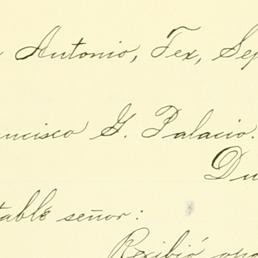 Antonio, Tex, Sep
ncisco G. Palacio.
Du
table señor:
Recibió